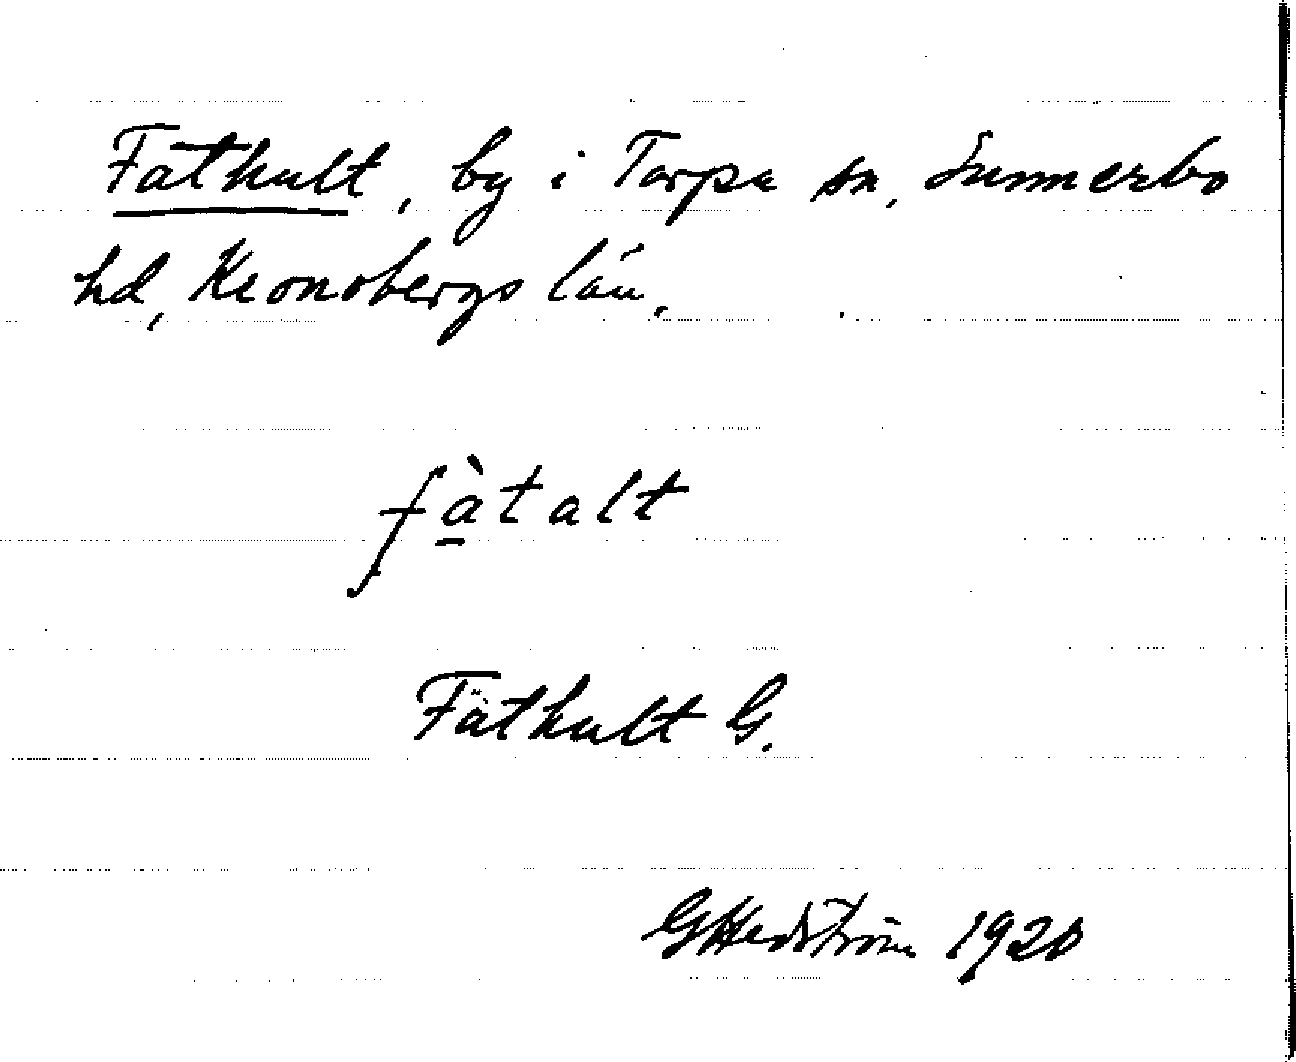 Fäthult, by i Torpa sn, Sunnerbo
hd, Kronobergs län.
fàtalt
Fäthult G.
GHedström 1920